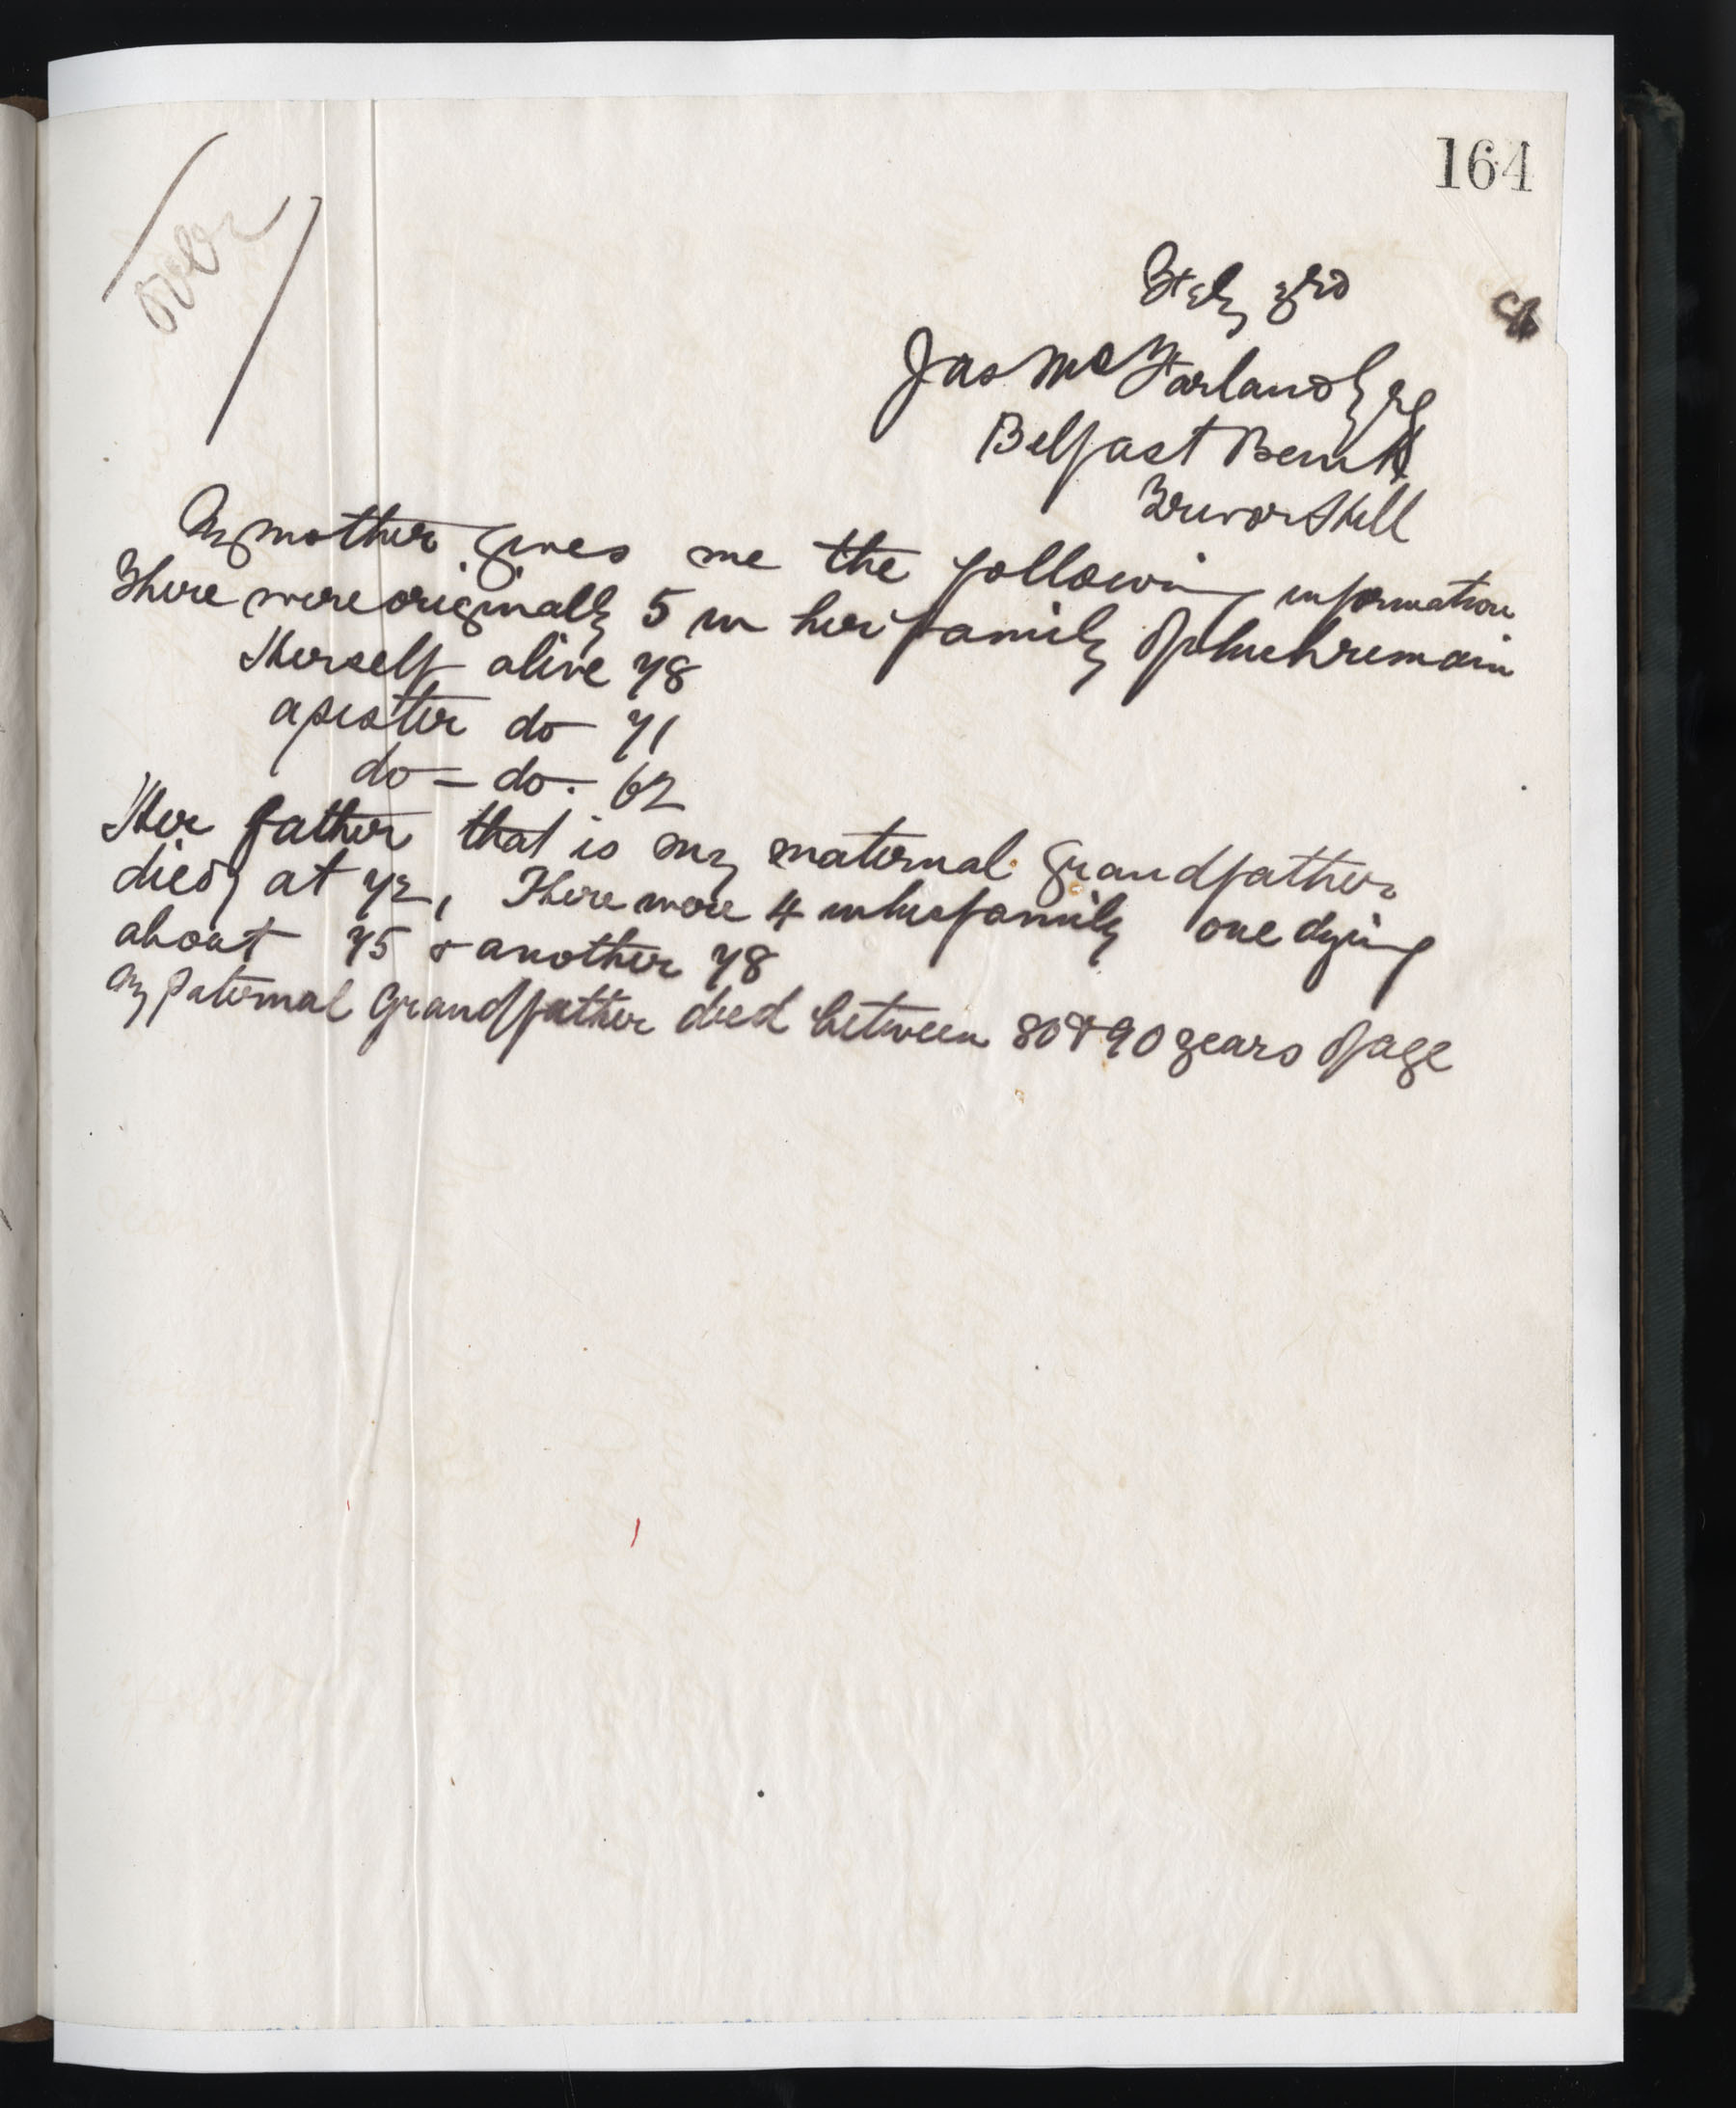 164
over
Jas McFarland Esq
Belfast
My mother gives me the following information
There were originally 5 in her family of which remain
Herself alive 78
a sister do 71
do - do. 62
Her father that is my maternal Grandfather
died at 72, There were 4 in his family one dying
about 75 & another 78
My paternal Grandfather died between 80 & 90 years of age